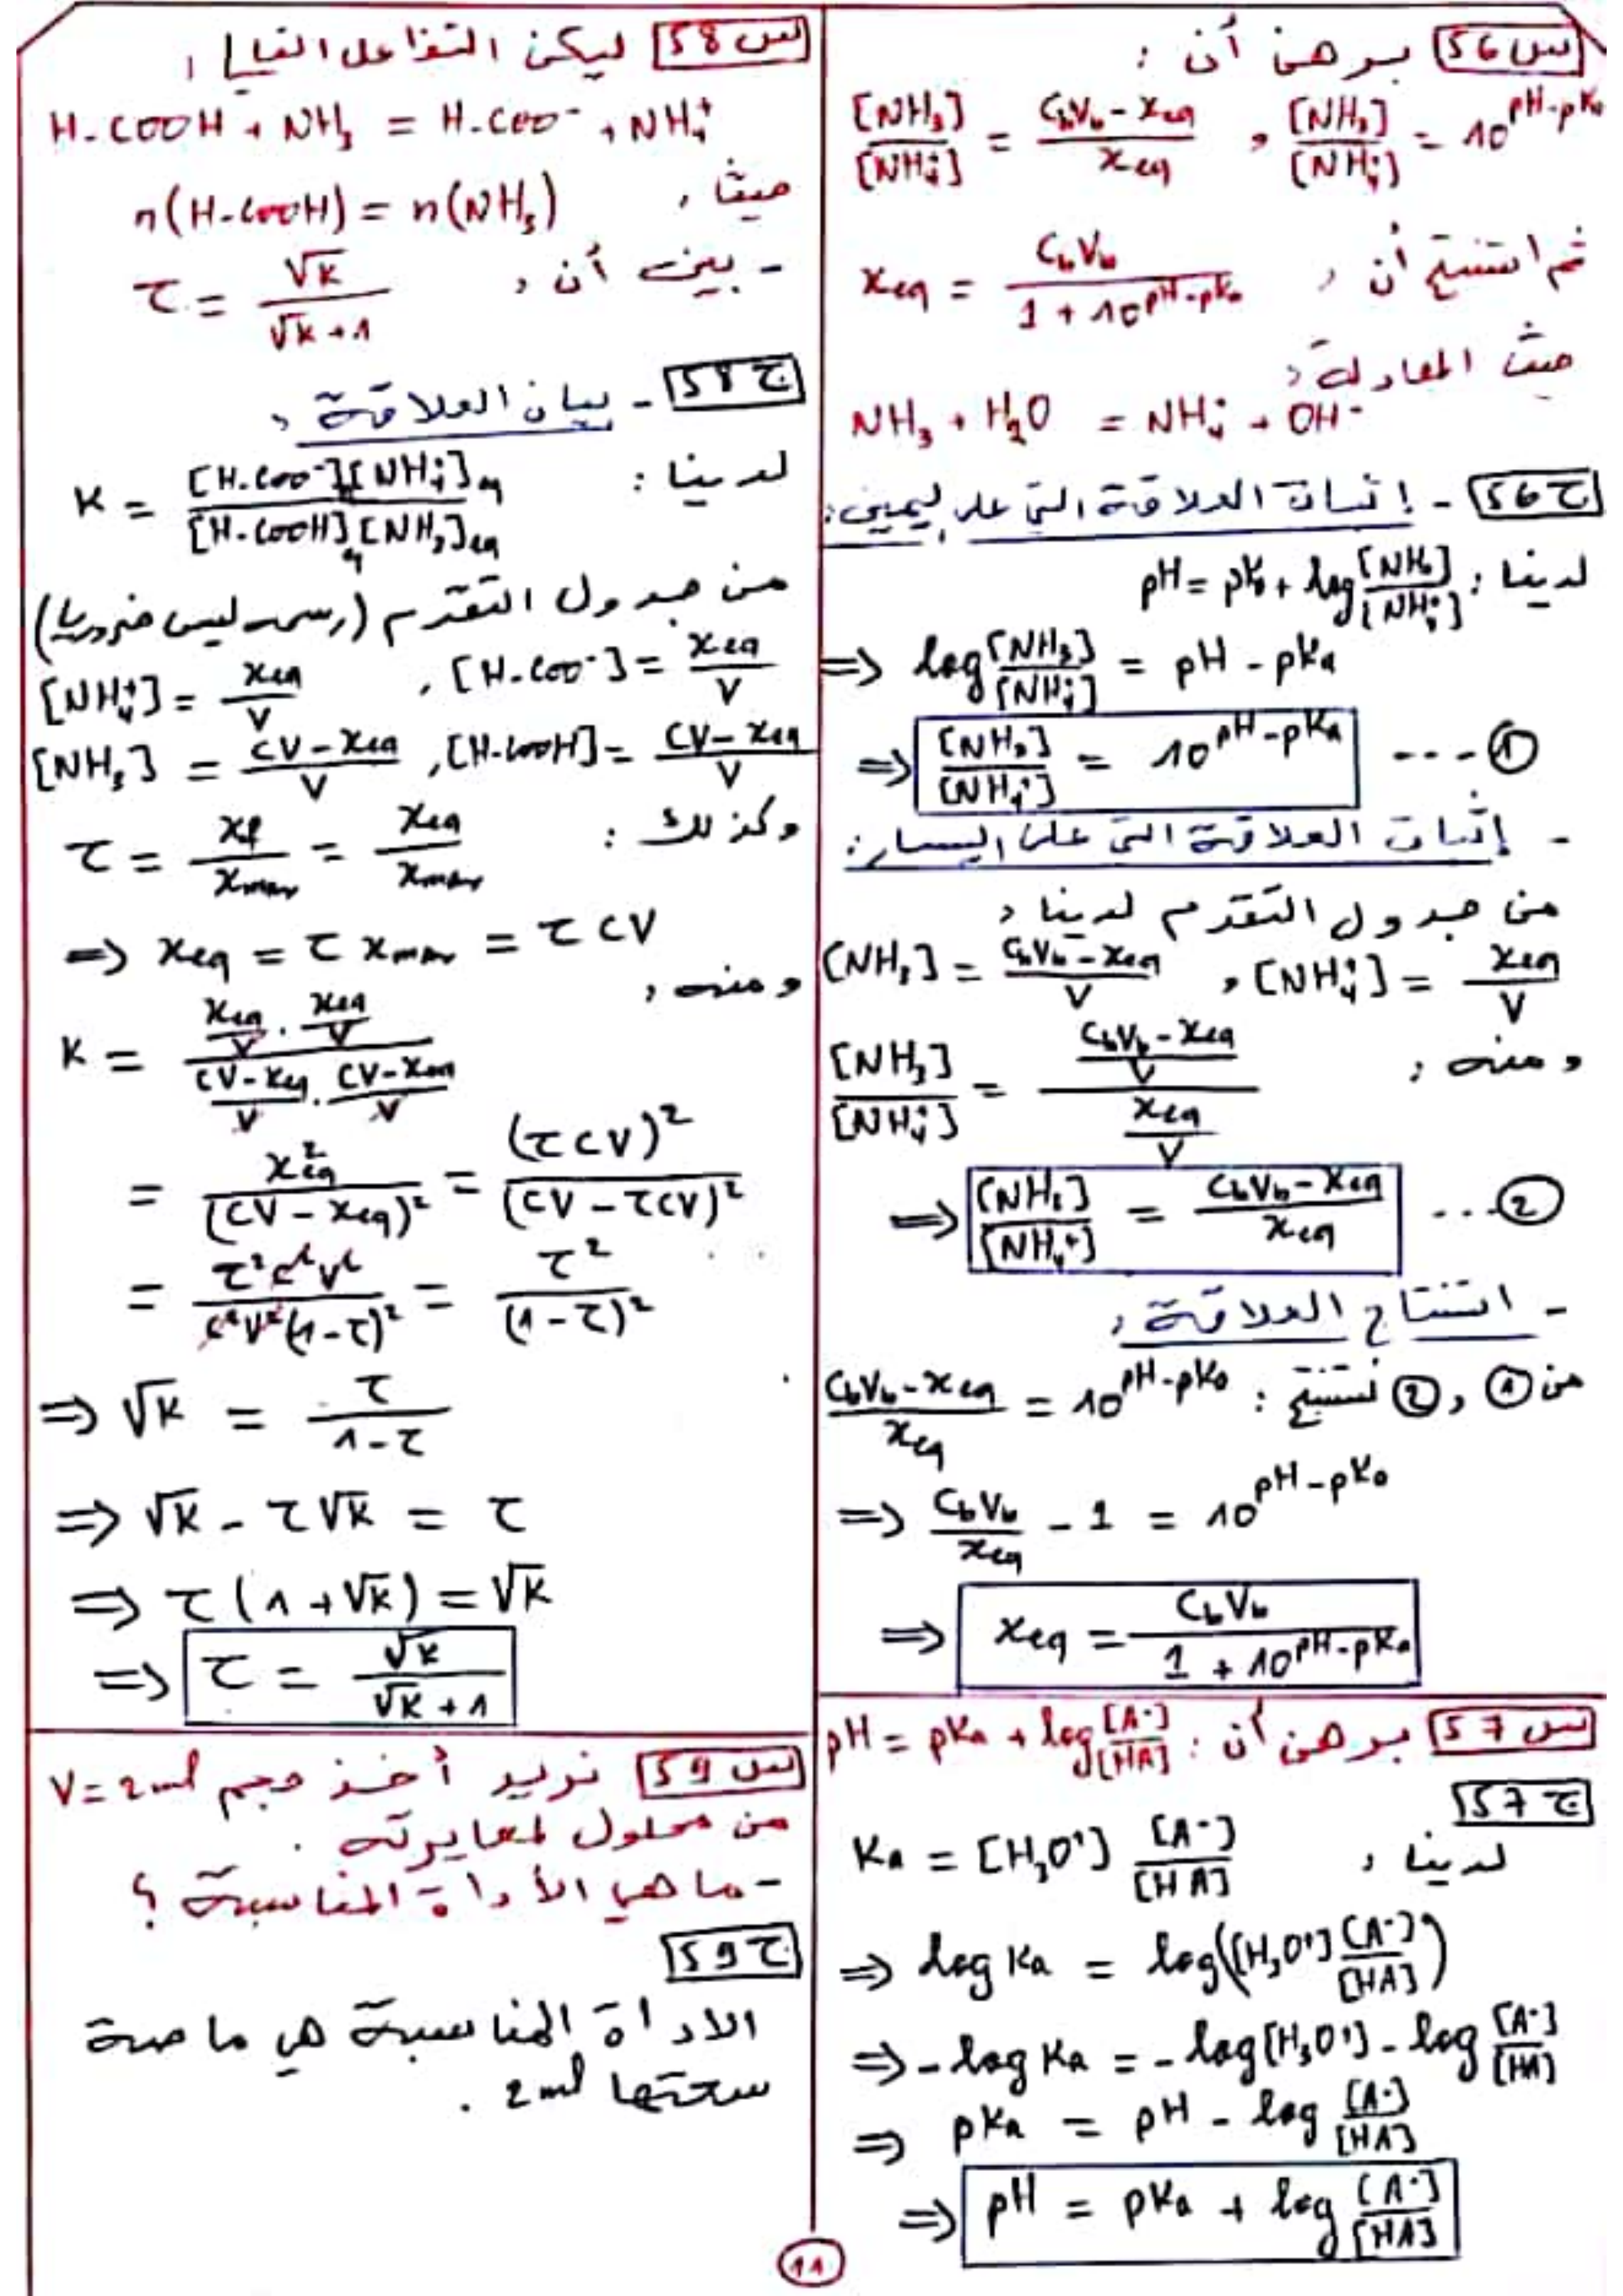 س56 برهن أن :
[NH₃]/[NH₄⁺] = (C_bV_b - x_eq)/x_eq , [NH₃]/[NH₄⁺] = 10^(pH-pKa)
ثم استنتج أن , x_eq = C_bV_b/(1 + 10^(pH-pKa))
حيث المعادلة ,
NH₃ + H₂O = NH₄⁺ + OH⁻
ج56 - إثبات العلاقة التي على اليمين :
لدينا : pH = pKa + log [NH₃]/[NH₄⁺]
⇒ log [NH₃]/[NH₄⁺] = pH - pKa
⇒ [NH₃]/[NH₄⁺] = 10^(pH-pKa) ---- ①
- إثبات العلاقة التي على اليسار :
من جدول التقدم لدينا ,
[NH₃] = (C_bV_b - x_eq)/V , [NH₄⁺] = x_eq/V
ومنه : [NH₃]/[NH₄⁺] = ((C_bV_b - x_eq)/V)/(x_eq/V)
⇒ [NH₃]/[NH₄⁺] = (C_bV_b - x_eq)/x_eq ...②
- استنتاج العلاقة ,
من ① و ② نستنتج : (C_bV_b - x_eq)/x_eq = 10^(pH-pKa)
⇒ C_bV_b/x_eq - 1 = 10^(pH-pKa)
⇒ x_eq = C_bV_b/(1 + 10^(pH-pKa))
س57 برهن أن : pH = pKa + log [A⁻]/[HA]
ج57
لدينا , Ka = [H₃O⁺] [A⁻]/[HA]
⇒ log Ka = log([H₃O⁺] [A⁻]/[HA])
⇒ -log Ka = -log[H₃O⁺] - log [A⁻]/[HA]
⇒ pKa = pH - log [A⁻]/[HA]
⇒ pH = pKa + log [A⁻]/[HA]
س58 ليكن التفاعل التالي :
H-COOH + NH₃ = H-COO⁻ + NH₄⁺
حيث , n(H-COOH) = n(NH₃)
- بين أن , τ = √K/(√K + 1)
ج58 - بيان العلاقة ,
لدينا : K = [H-COO⁻][NH₄⁺]eq/[H-COOH]eq[NH₃]eq
من جدول التقدم (رسمه ليس ضروريا)
[NH₄⁺] = x_eq/V , [H-COO⁻] = x_eq/V
[NH₃] = (CV - x_eq)/V , [H-COOH] = (CV - x_eq)/V
وكذلك : τ = x_f/x_max = x_eq/x_max
⇒ x_eq = τ x_max = τ CV
ومنه ,
K = (x_eq/V . x_eq/V)/((CV - x_eq)/V . (CV - x_eq)/V)
= x_eq²/(CV - x_eq)² = (τCV)²/(CV - τCV)²
= τ²C²V²/C²V²(1-τ)² = τ²/(1-τ)²
⇒ √K = τ/(1-τ)
⇒ √K - τ√K = τ
⇒ τ(1 + √K) = √K
⇒ τ = √K/(√K + 1)
س59 نريد أخذ حجم V = 2ml
من محلول لمعايرته .
- ما هي الأداة المناسبة ؟
ج59
الاداة المناسبة هي ماصة
سعتها 2ml .
11